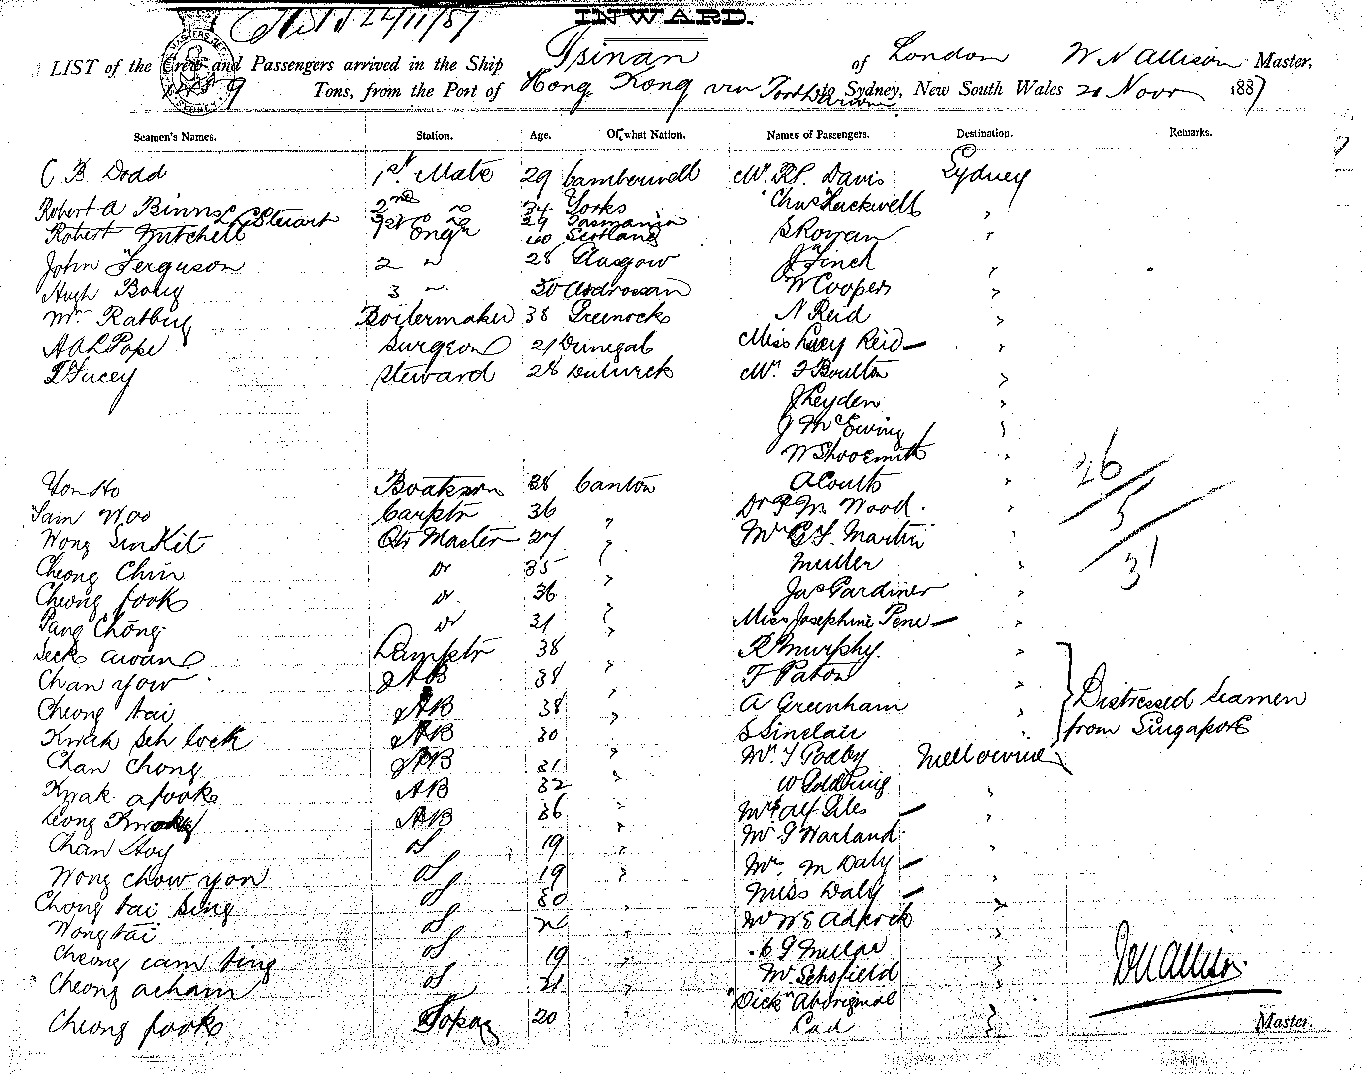 INWARD.
LIST of the Crew and Passengers arrived in the Ship Tsinan of London W N Allison Master,
Tons, from the Port of Hong Kong via Port Darwin to Sydney, New South Wales 20 Novr 1887
Seamen's Names. Station. Age. Of what Nation. Names of Passengers. Destination. Remarks.
C B Dodd 1st Mate 29 Camberwell Mr R P. Davis Sydney
Robert A Binns 2nd " 24 Yorks Chas Hackwell "
Stewart 3rd " 29 Tasmania
Robert Mitchell 1st Engr 40 Scotland S Rowan "
John Ferguson 2 " 28 Glasgow J Finch "
Hugh Boag 3 " 30 Ardrossan W Coopers "
Wm Ratbug Boilermaker 38 Greenock N Reid "
A A L Pope Surgeon 21 Donegal Miss Lucy Reid — "
Tucey Steward 28 Dulwich Mr. F Boulton "
J Leyden "
J McEwing "
W Shoosmith "
Yon Ho Boatswn 38 Canton A Coutts "
Sam Woo Carptr 36 " Dr P M Wood. "
Wong Sun Kit Qtr Master 27 " Mr C F. Martin "
Cheong Chin Do 35 " Muller "
Cheong fook Do 36 " Jas Gardiner "
Pang Chong Do 31 " Miss Josephine Pene — "
Seck awan Lamptr 38 " R Murphy. "
Chan yow AB 38 " T Paton "
Cheong tai AB 38 " A Greenham "
Distressed Seamen
from Singapore
Kwak Seh lock AB 30 " S Sinclair "
Chan Chong AB 31 " Mr. T Podby Melbourne
Kwak afook AB 32 " W Goldring "
Leong Kwok AB 36 " Mrs Alf Giles — "
Chan Hoy OS 19 " Mr F Warland "
Wong chow yon OS 19 " Mrs M Daly — "
Chong tai sing OS 30 " Miss Daly — "
Wong tai OS " Mr W E Adcock "
Cheong cam ting OS 19 " C F Muller "
Cheong acham OS 21 " Mr Schofield "
Cheong fook Topaz 20 "Dick" Aboriginal
Lad "
26
5
31
W N Allison
Master.